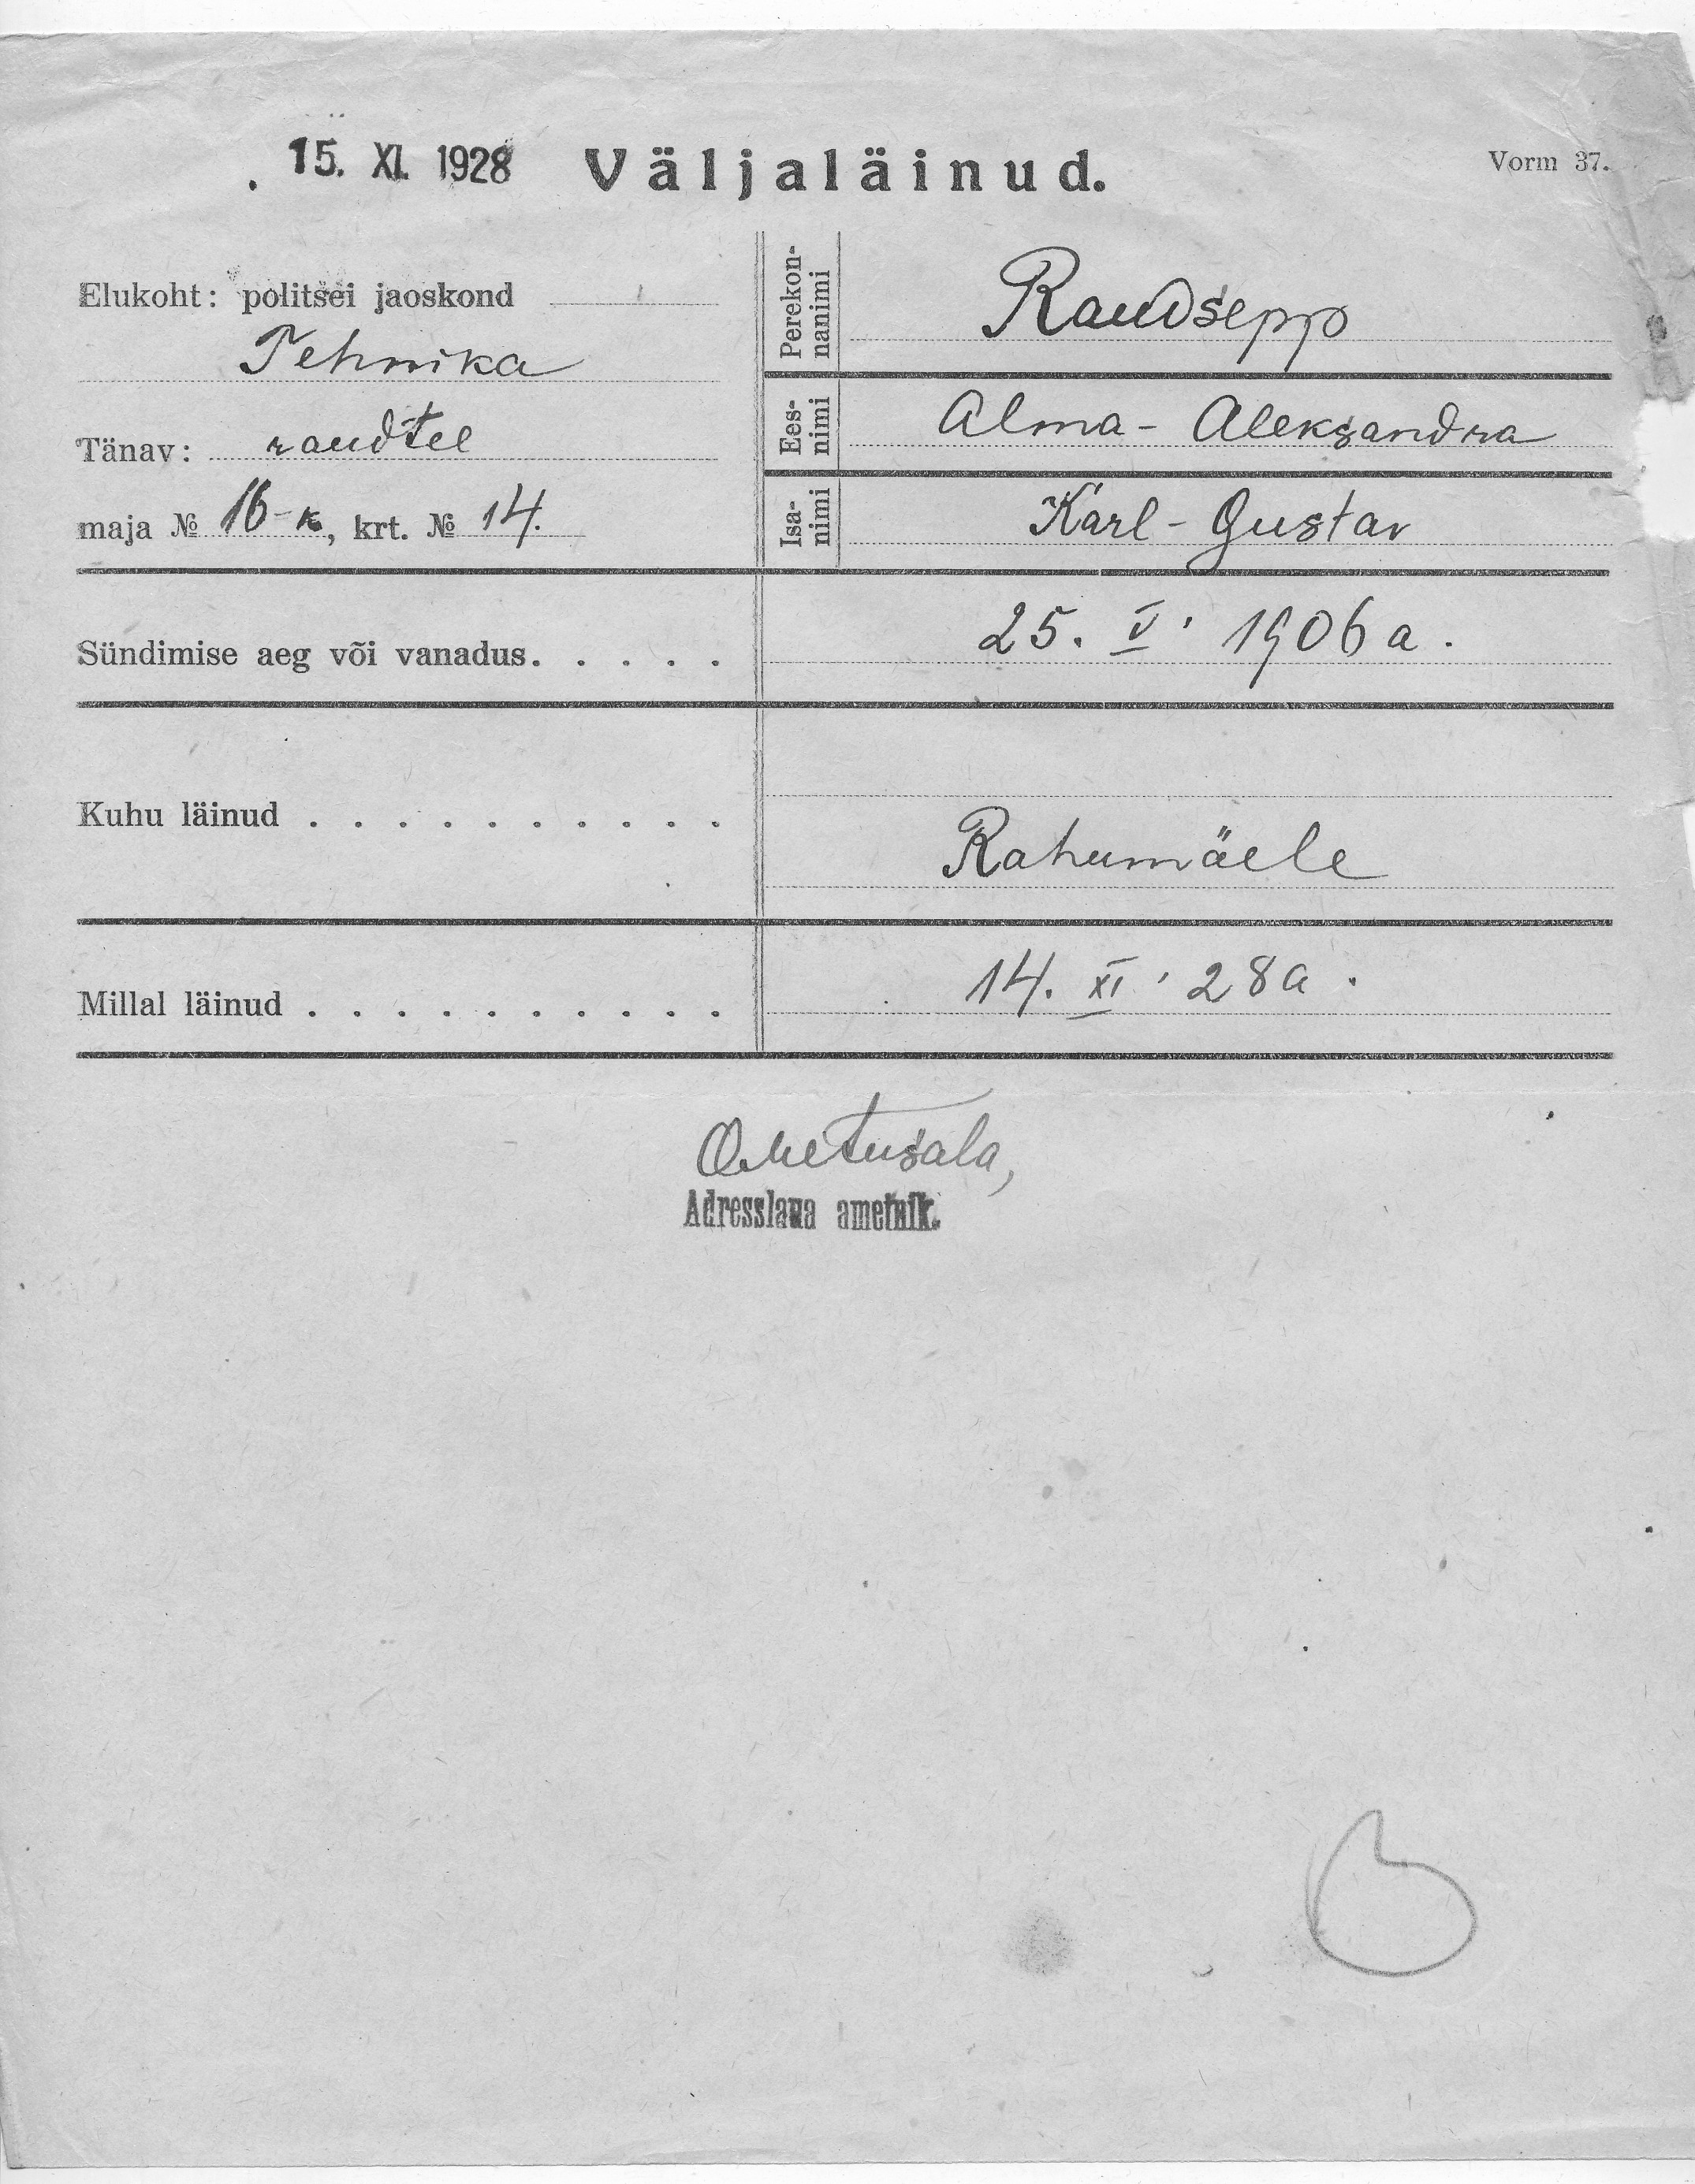 15. XI. 1928 Väljaläinud. Vorm 37.
Elukoht: politsei jaoskond
Tehnika
Tänav: raudtee
maja № 16-k, krt. № 14.
Perekon-
nanimi
Raudsepp
Ees-
nimi
Alma-Aleksandra
Isa-
nimi
Karl-Gustav
Sündimise aeg või vanadus. . . . .
25. V. 1906 a.
Kuhu läinud . . . . . . . . . .
Rahumäele
Millal läinud . . . . . . . . . .
14. XI. 28 a.
Adresslaua ametnik.